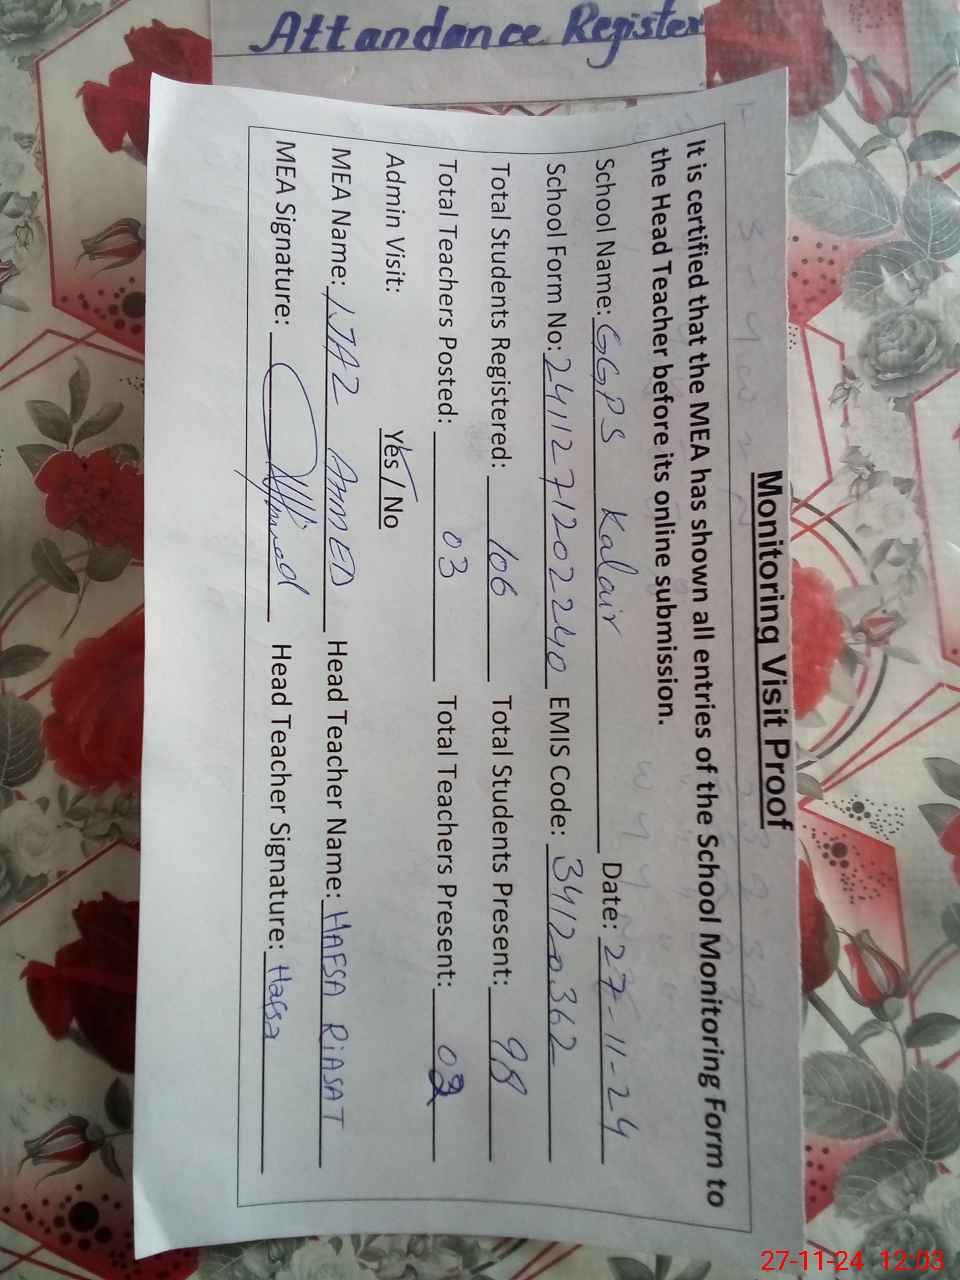 Attandance Register
Monitoring Visit Proof
It is certified that the MEA has shown all entries of the School Monitoring Form to
the Head Teacher before its online submission.
School Name: GGPS Kalair Date: 27-11-24
School Form No: 2411271202240 EMIS Code: 34120362
Total Students Registered: 106 Total Students Present: 98
Total Teachers Posted: 03 Total Teachers Present:
Admin Visit: Yes / No
MEA Name: IJAZ AHMED Head Teacher Name: HAFSA RiASAT
MEA Signature: Ahmad Head Teacher Signature: Hafsa
27-11-24 12:03